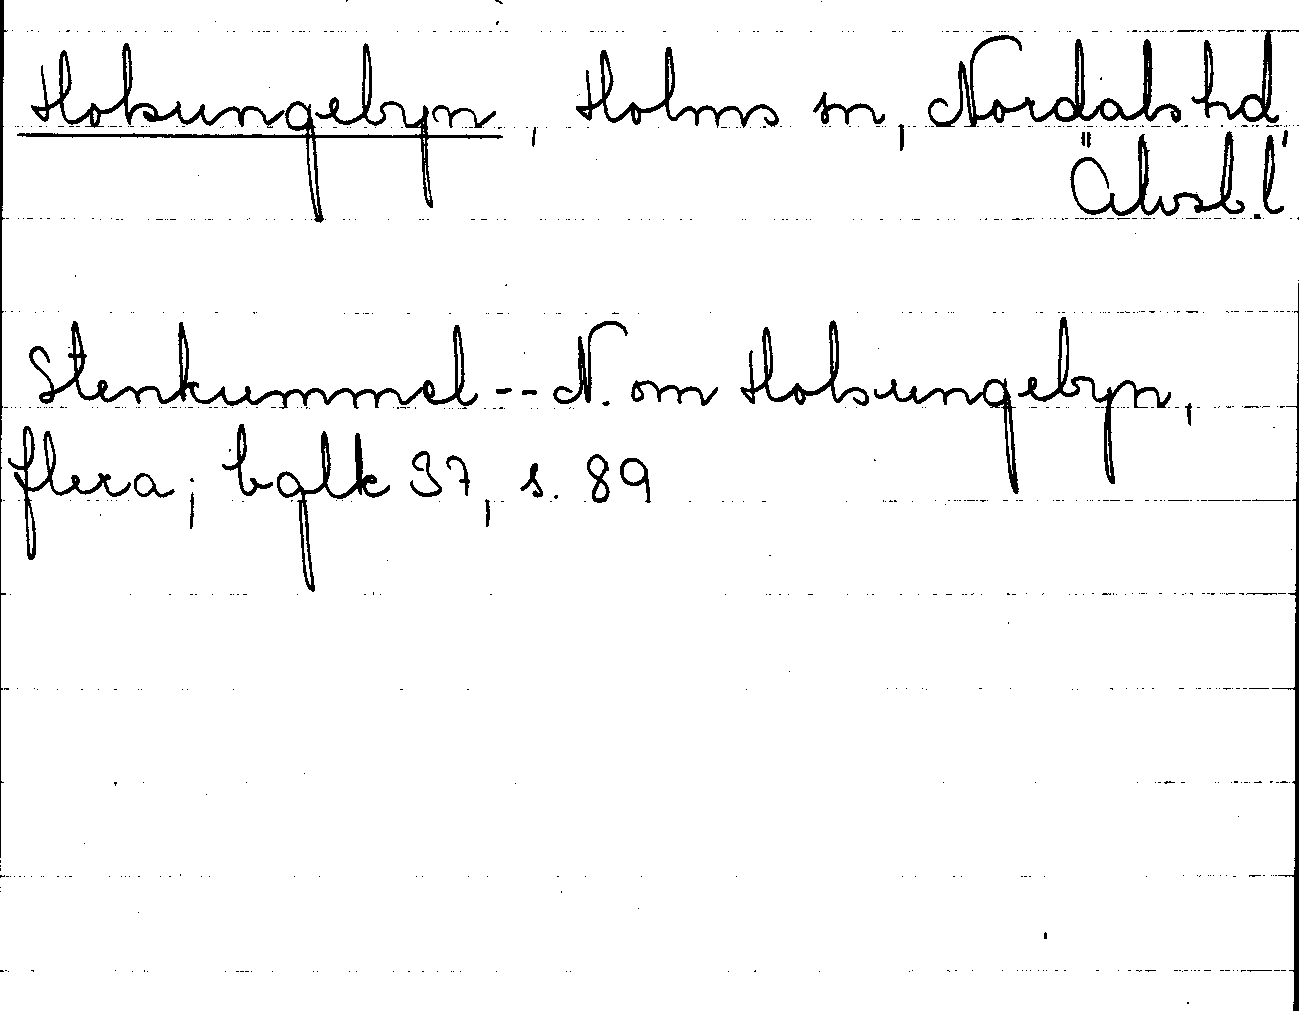 Holsungebyn, Holms sn, Nordals hd,
Älvsb. l
Stenkummel -- N. om Holsungebyn,
flera; bglk 37, s. 89